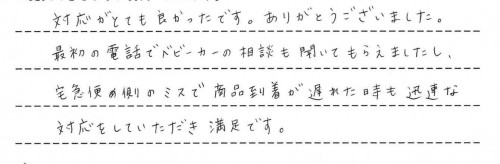 対応がとても良かったです。ありがとうございました。
最初の電話でベビーカーの相談も聞いてもらえましたし、
宅急便の側のミスで商品到着が遅れた時も迅速な
対応をしていただき満足です。